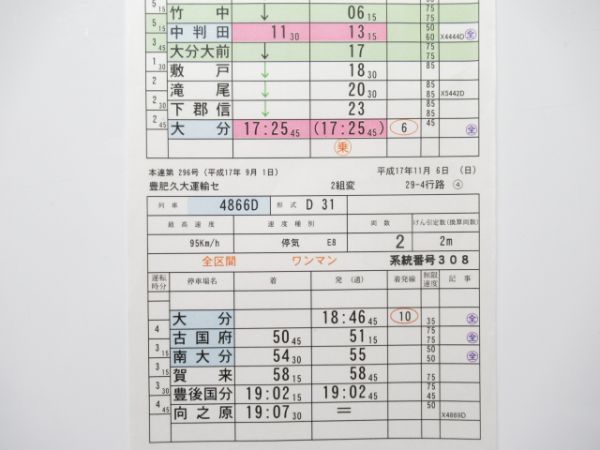 竹中 ↓ 06 15 75
5 15 75
中判田 11 30 13 15 50 60 X4444D 全
3 45 75
大分大前 ↓ 17 75
1 30 85
敷戸 ↓ 18 30
2
滝尾 ↓ 20 30 85 85 X5442D
2 30 85
下郡信 ↓ 23 85
2 45 45
大分 17:25 45 (17:25 45) 6 全
乗
本運第 296号 (平成17年 9月 1日) 平成17年11月 6日 (日)
豊肥久大運輸セ 2組変 29-4行路 ④
列車 4866D 形式 D 31
最高速度 速度種別 両数 けん引定数(換算両数)
95Km/h 停気 E8 2 2m
全区間 ワンマン 系統番号308
運転時分 停車場名 着 発(通) 着発線 制限速度 記事
大分 18:46 45 10 35 全
4 75
古国府 50 45 51 15 75 全
3 15 50
南大分 54 30 55 50 全
3 15
賀来 58 15 58 45 75
3 30 75
豊後国分 19:02 15 19:02 45 45
4 45 50
向之原 19:07 30 = X4869D